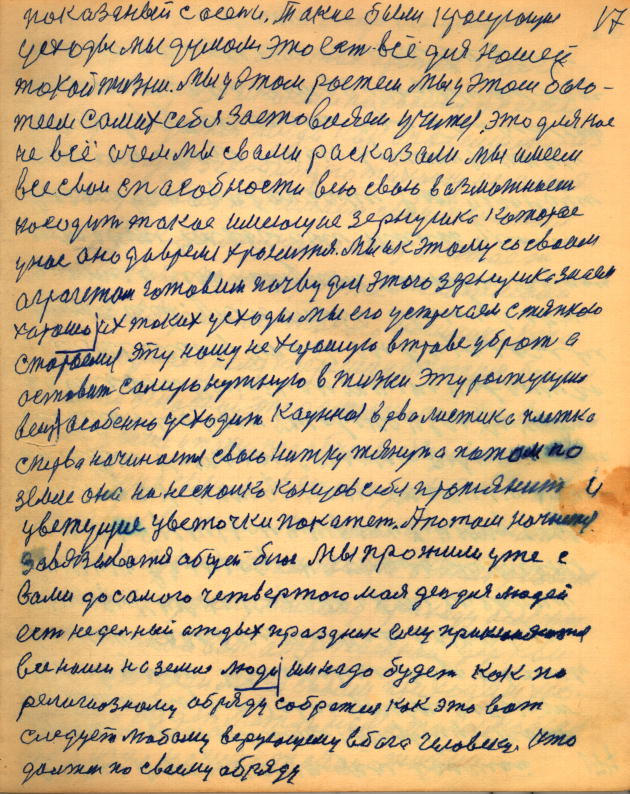 показаный с осени. Такие были красующие 17
усходы мы думали это ест всё для нашей
такой жизни. Мы у этом ростем мы у этом бога-
теем самих себя заставляем учится, это для нас
не всё очем мы свами расказали мы имеем
все свои способности всю свою возможност
находит такое имеющие зернушко которое
у нас оно до время хранится. Мы их к этому со своим
агрегетом готовим почву для этого зернушка знаем
харашо их таких усходы мы его устречаем с тяпкою
стараемся эту нашу не хорошую втраве убрат а
оставит самую нужную в жизни эту ростущую
вещ особенно усходит каунка в два листика плетка
сперва начинается свою нитку тянут а потом по
земле она на несколко концов себя протянит и
цветущие цветочки покажет. А потом начнется
завязыватся общей бое мы прожили уже с
Вами до самого четвертого мая день для людей
ест неделный отдых праздник ему приклоняются
все наши на земле люди им надо будет как по
религиозному обряду собратся как это вот
следует любому верующему в бога человеку. Что
должен по своему обряду